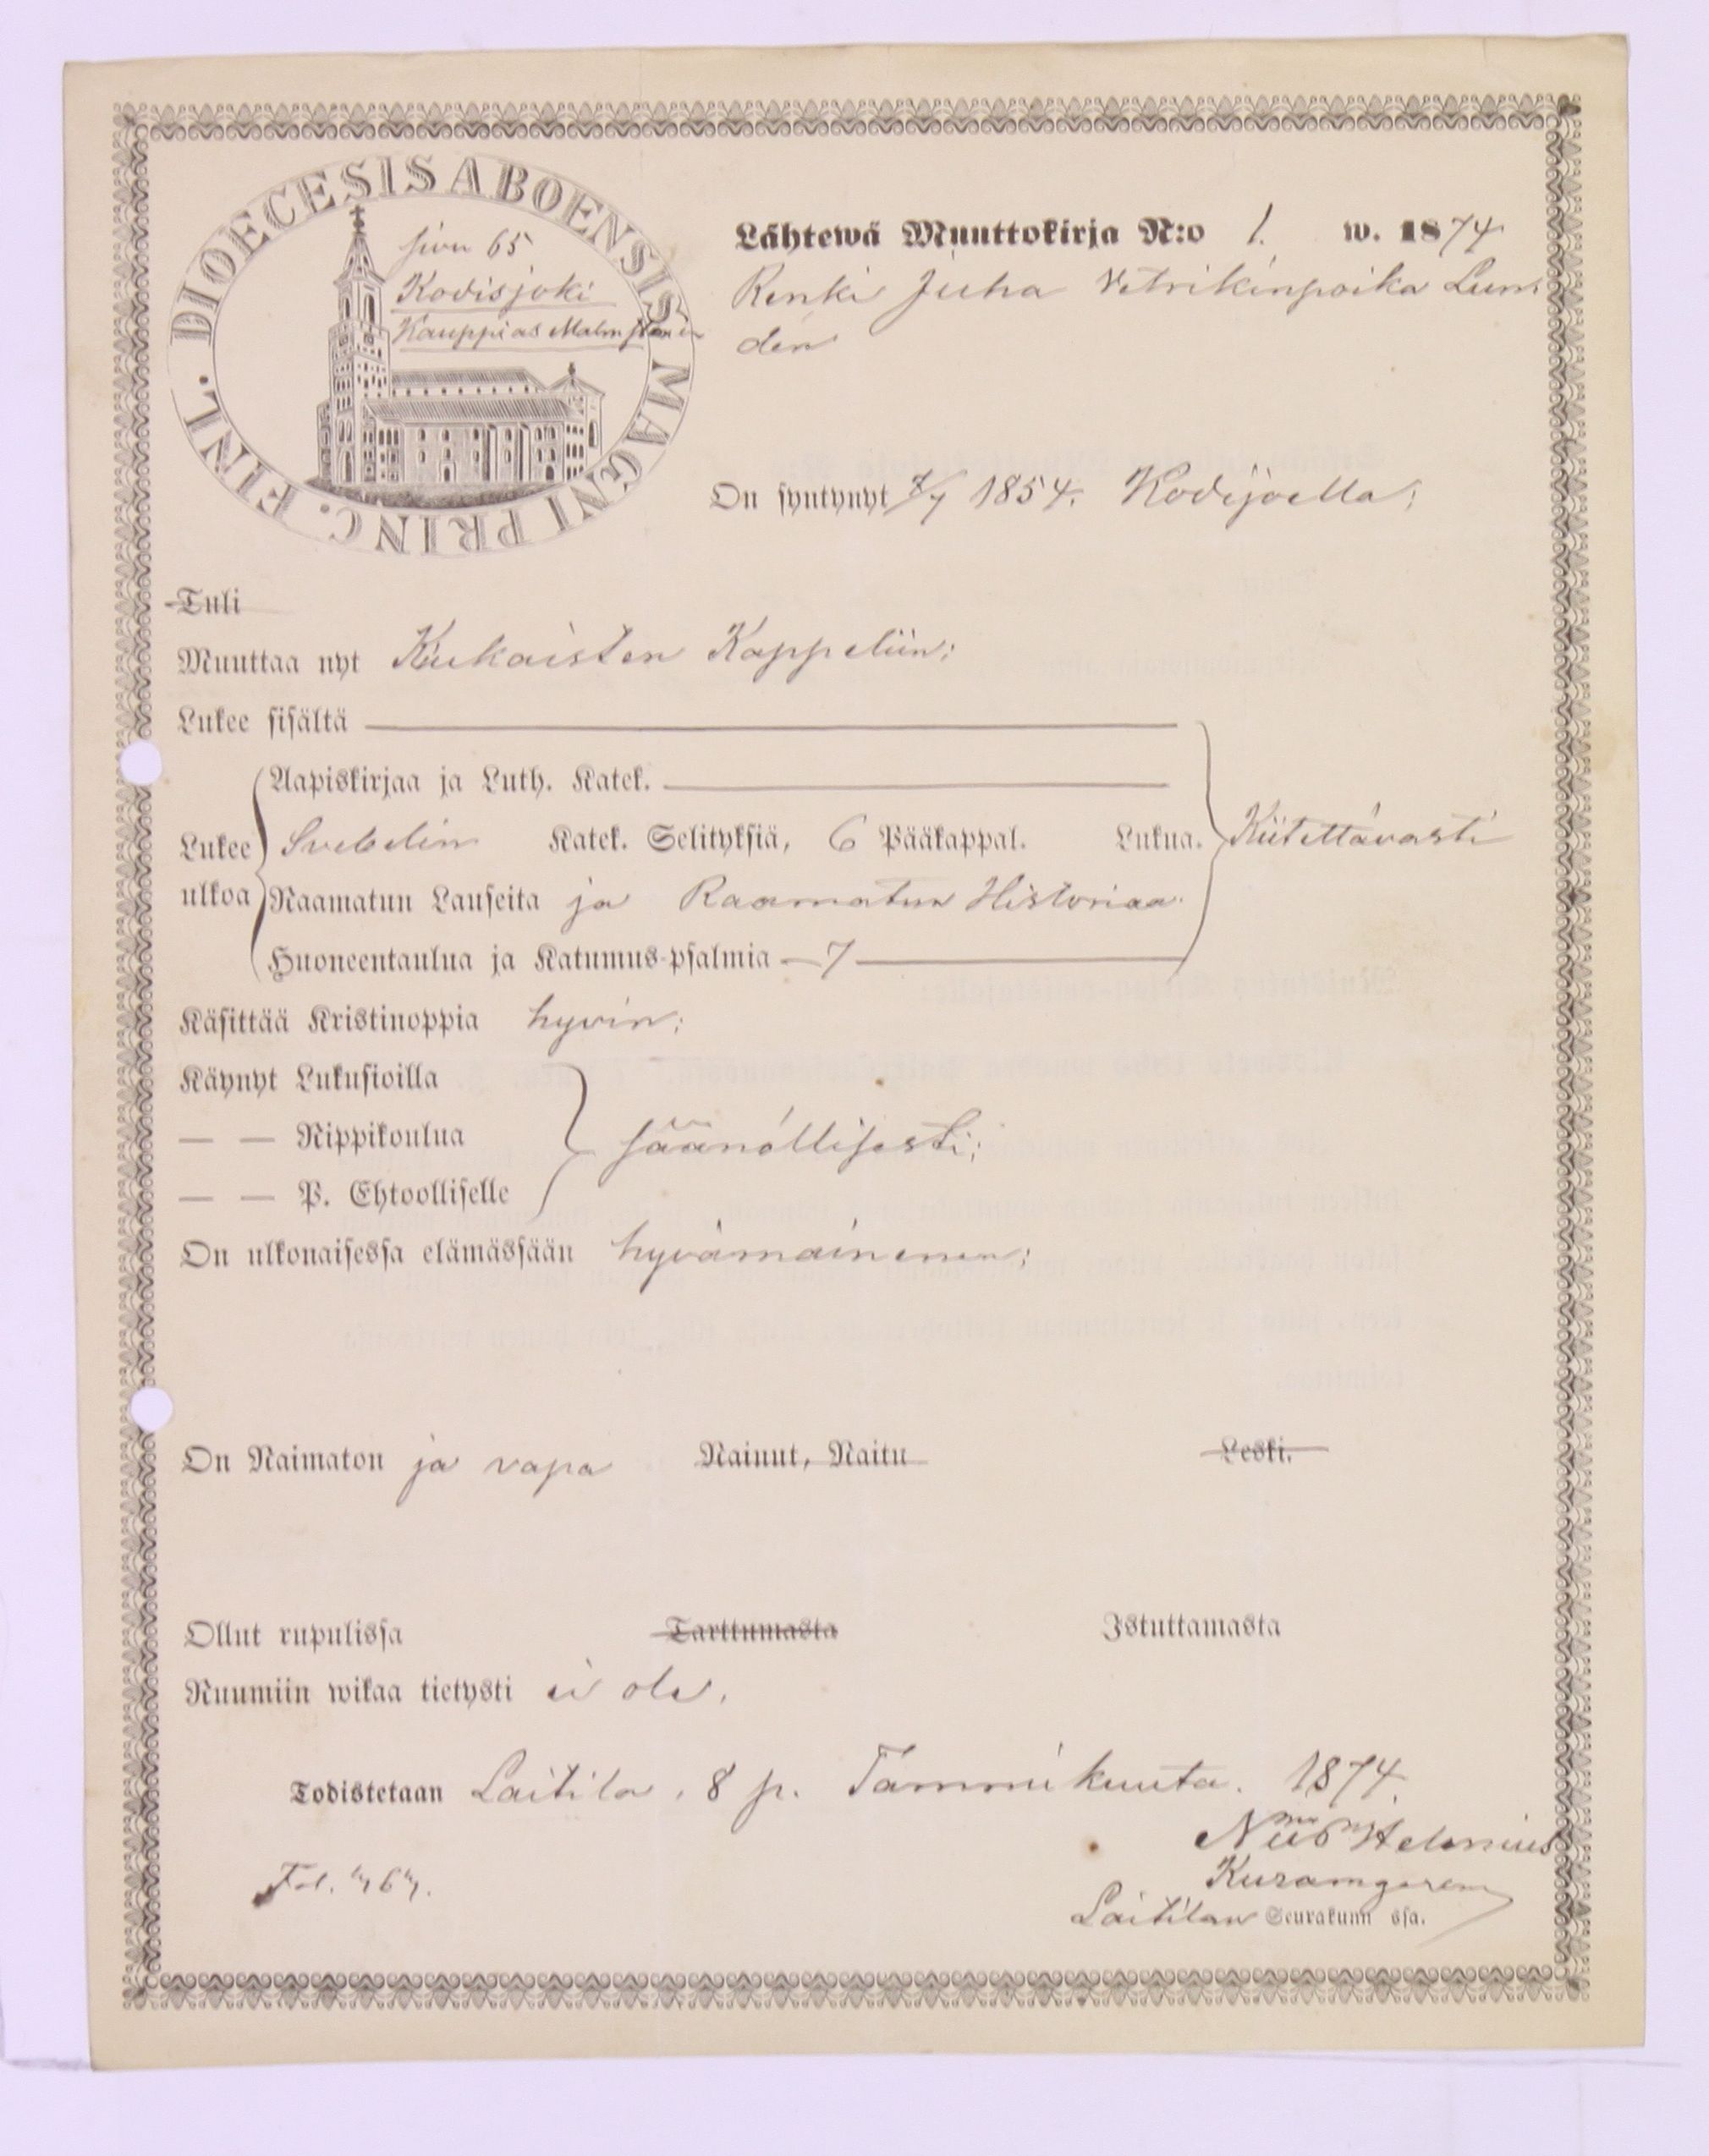 DIOECESIS ABOENSIS MAGNI PRINC. FINL.
sivu 65
Kodisjoki
Kauppias Malmsten
Lähtewä Muuttokirja N:o 1. w. 1874
Renki Juha Vetrikinpoika Lun
den
On syntynyt 7/7 1854. Kodisjoella;
Tuli
Muuttaa nyt Kiukaisten Kappeliin;
Lukee sisältä
Aapiskirjaa ja Luth. Katek.
Lukee ulkoa
Svebelin Katek. Selityksiä, 6 Pääkappal. Lukua. Kiitettävästi
Raamatun Lauseita ja Raamatun Historiaa.
Huoneentaulua ja Katumus-psalmia 7
Käsittää Kristinoppia hyvin;
Käynyt Lukusioilla
— — Rippikoulua
säänöllisesti;
— — P. Ehtoolliselle
On ulkonaisessa elämässään hyvämainenen;
On Naimaton ja vapa Nainut, Naitu Leski.
Ollut rupulissa Tarttumasta Istuttamasta
Ruumiin wikaa tietysti ei ole.
Todistetaan Laitila, 8 p. Tammikuuta. 1874.
Helenius
Fol. 467.
Laitilan Seurakunn ssa.